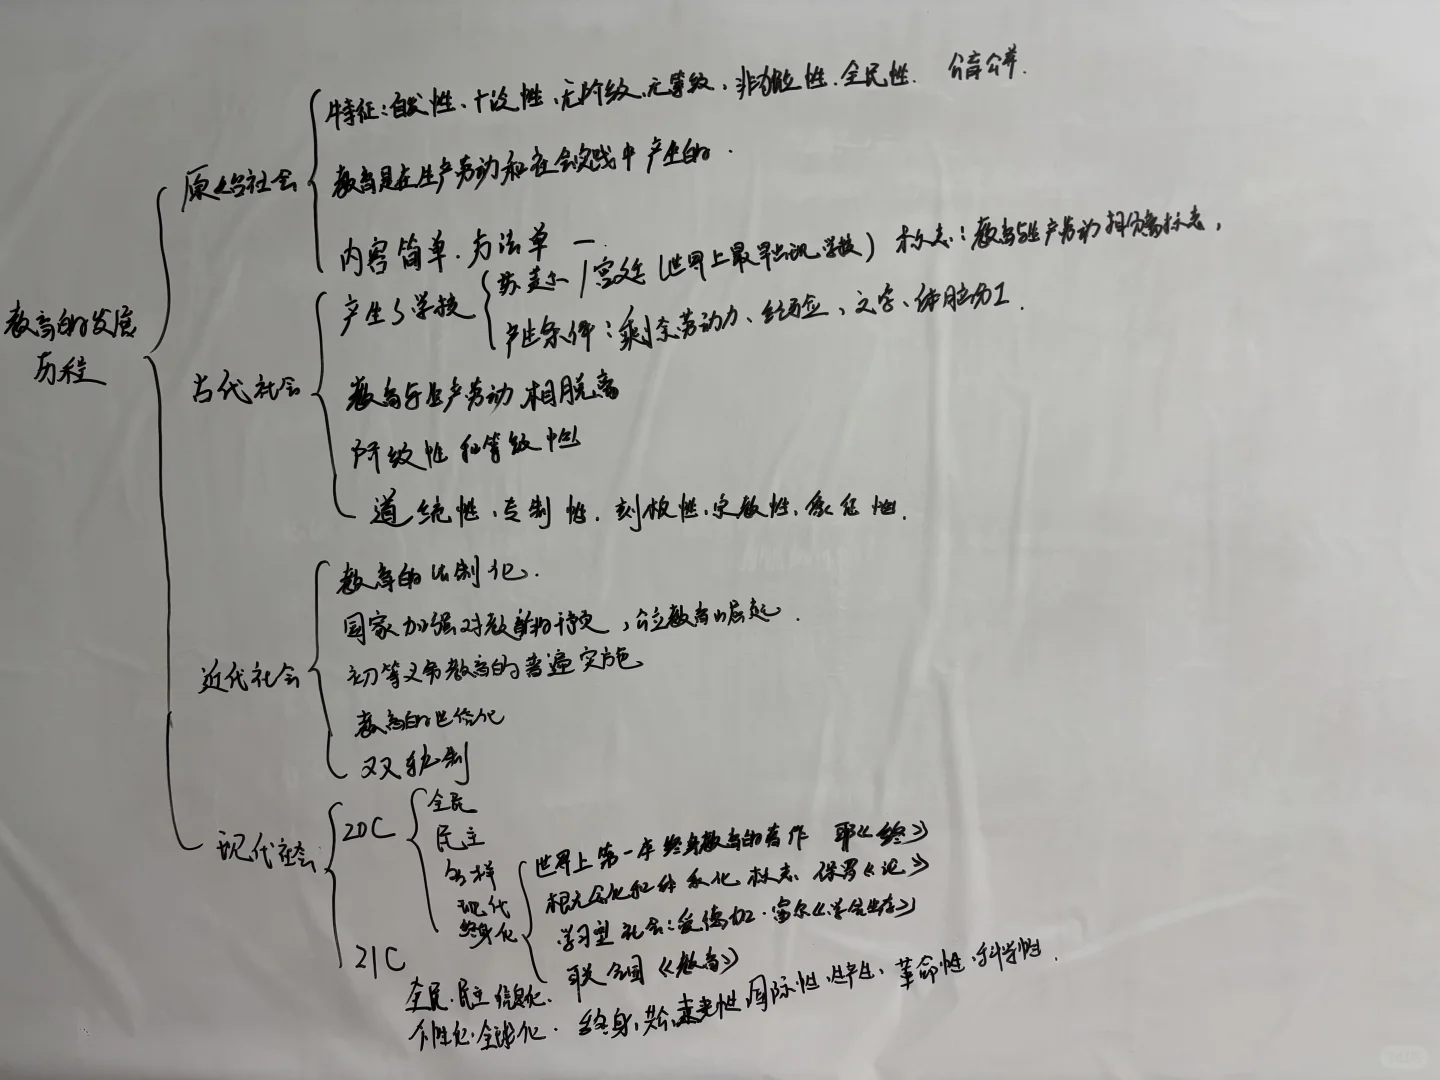 教育的发展
历程
原始社会
特征：自发性、广泛性、无阶级、无等级、非独立性、全民性. 公育公养.
教育是在生产劳动和社会实践中产生的.
内容简单.方法单一.
古代社会
产生了学校
苏美尔/宫廷(世界上最早出现学校) 标志：教育与生产劳动相分离标志,
产生条件：剩余劳动力、经验、文字、体脑分工.
教育与生产劳动相脱离
阶级性和等级性
道统性、专制性.刻板性.宗教性、象征性.
近代社会
教育的法制化.
国家加强对教育的干预,公立教育崛起.
初等义务教育的普遍实施
教育的世俗化
双轨制
现代社会
20C
全民
民主
多样
现代
终身化
世界上第一本终身教育的著作 耶《终》
根 化和体系化标志 保罗《论》
学习型社会：埃德加·富尔《学会生存》
联合国《教育》
21C
全民.民主.信息化.
个性化.全球化. 终身, 未来性,国际性,生产性、革命性,科学性.